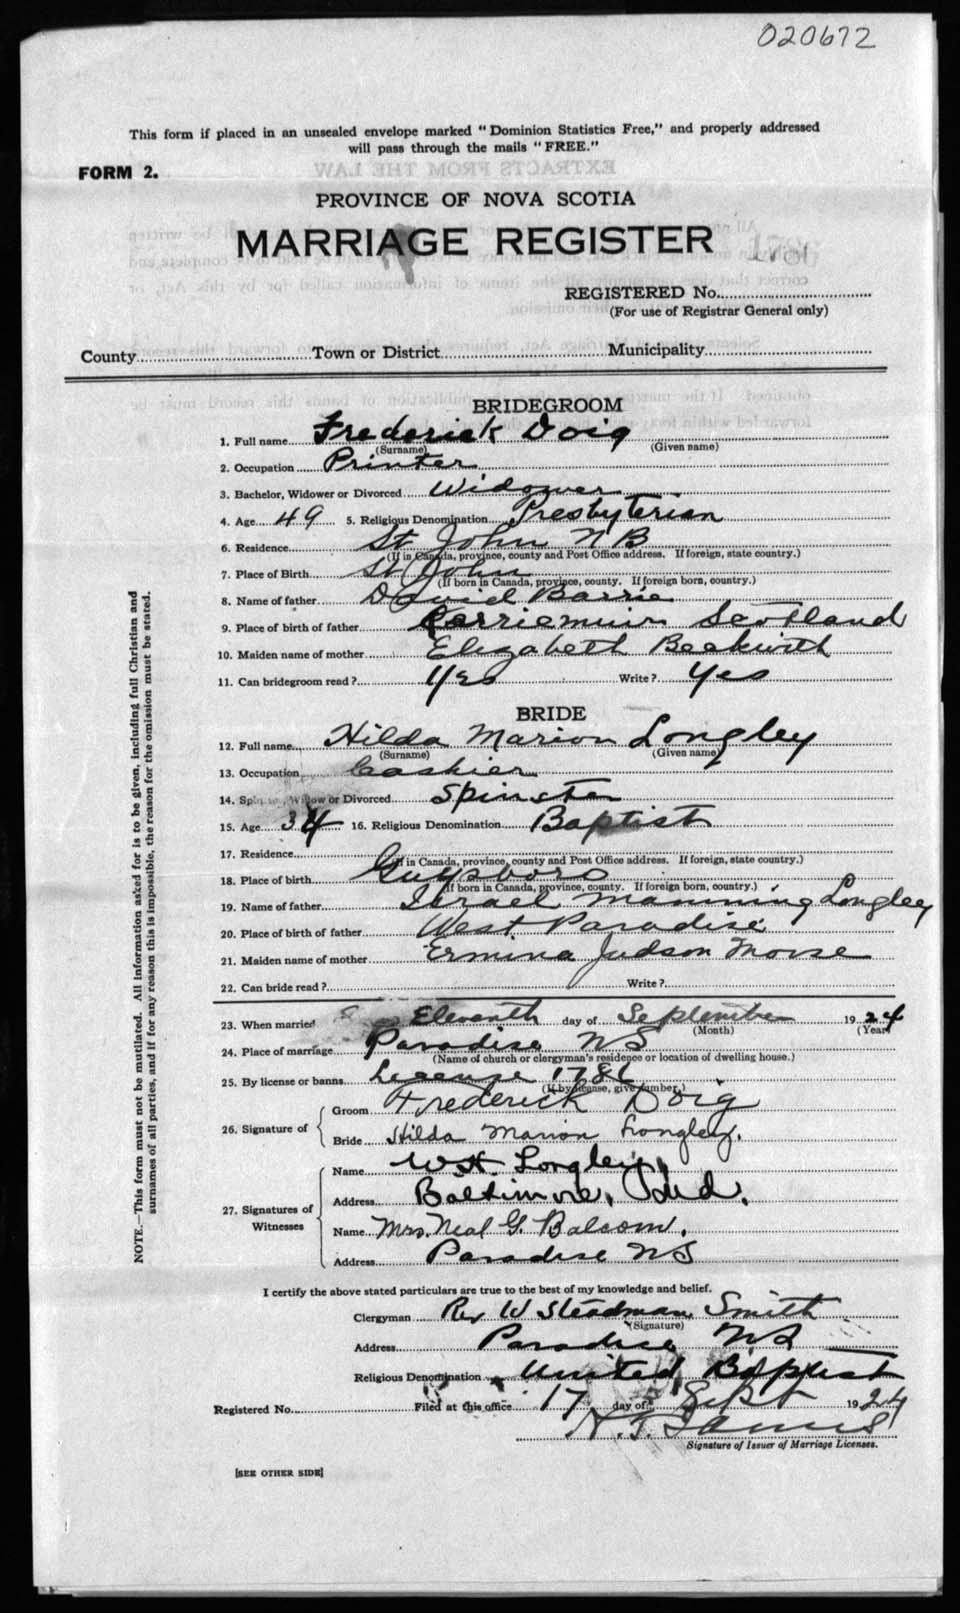 020672
This form if placed in an unsealed envelope marked "Dominion Statistics Free," and properly addressed
will pass through the mails "FREE."
FORM 2.
PROVINCE OF NOVA SCOTIA
MARRIAGE REGISTER
REGISTERED No.
(For use of Registrar General only)
County Town or District Municipality
BRIDEGROOM
1. Full name Frederick Doig
(Surname) (Given name)
2. Occupation Printer
3. Bachelor, Widower or Divorced Widower
4. Age 49 5. Religious Denomination Presbyterian
6. Residence St John N B
(If in Canada, province, county and Post Office address. If foreign, state country.)
7. Place of Birth St John
(If born in Canada, province, county. If foreign born, country.)
8. Name of father David Barrie
9. Place of birth of father Kerriemuir Scotland
10. Maiden name of mother Elizabeth Beckwith
11. Can bridegroom read? Yes Write? Yes
BRIDE
12. Full name Hilda Marion Longley
(Surname) (Given name)
13. Occupation Cashier
14. Spinster, Widow or Divorced Spinster
15. Age 34 16. Religious Denomination Baptist
17. Residence
(If in Canada, province, county and Post Office address. If foreign, state country.)
18. Place of birth Guysboro
(If born in Canada, province, county. If foreign born, country.)
19. Name of father Israel Manning Longley
20. Place of birth of father West Paradise
21. Maiden name of mother Ermina Judson Morse
22. Can bride read? Write?
23. When married Eleventh day of September 1924
(Month) (Year)
24. Place of marriage Paradise NS
(Name of church or clergyman's residence or location of dwelling house.)
25. By license or banns License
(If by license, give number.)
26. Signature of Groom Frederick Doig
Bride Hilda Marion Longley.
27. Signatures of Witnesses Name W.H. Longley
Address Baltimore, Md.
Name Mrs. Neal G. Balcom.
Address Paradise NS
I certify the above stated particulars are true to the best of my knowledge and belief.
Clergyman Rev W Steadman Smith
(Signature)
Address Paradise NS
Religious Denomination United Baptist
Registered No. Filed at this office 17 day of Sept 1924
Signature of Issuer of Marriage Licenses.
[SEE OTHER SIDE]
NOTE.—This form must not be mutilated. All information asked for is to be given, including full Christian and
surnames of all parties, and if for any reason this is impossible, the reason for the omission must be stated.